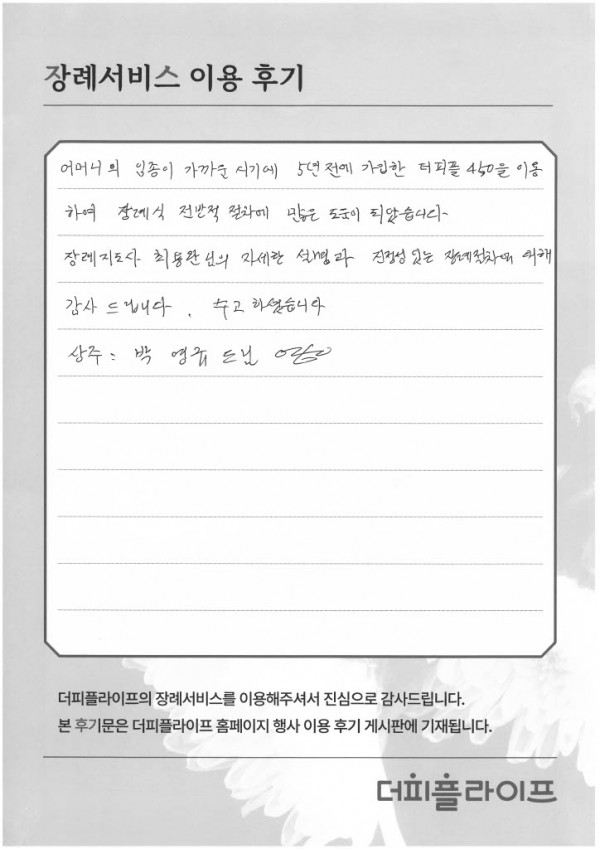 장례서비스 이용 후기
어머니의 임종이 가까운 시기에 5년전에 가입한 더피플 450을 이용
하여 장례식 전반적 절차에 많은 도움이 되었습니다.
장례지도사 최용완님의 자세한 설명과 진정성 있는 장례절차에 의해
감사 드립니다. 수고 하셨습니다
상주: 박 영규 드님
더피플라이프의 장례서비스를 이용해주셔서 진심으로 감사드립니다.
본 후기문은 더피플라이프 홈페이지 행사 이용 후기 게시판에 기재됩니다.
더피플라이프